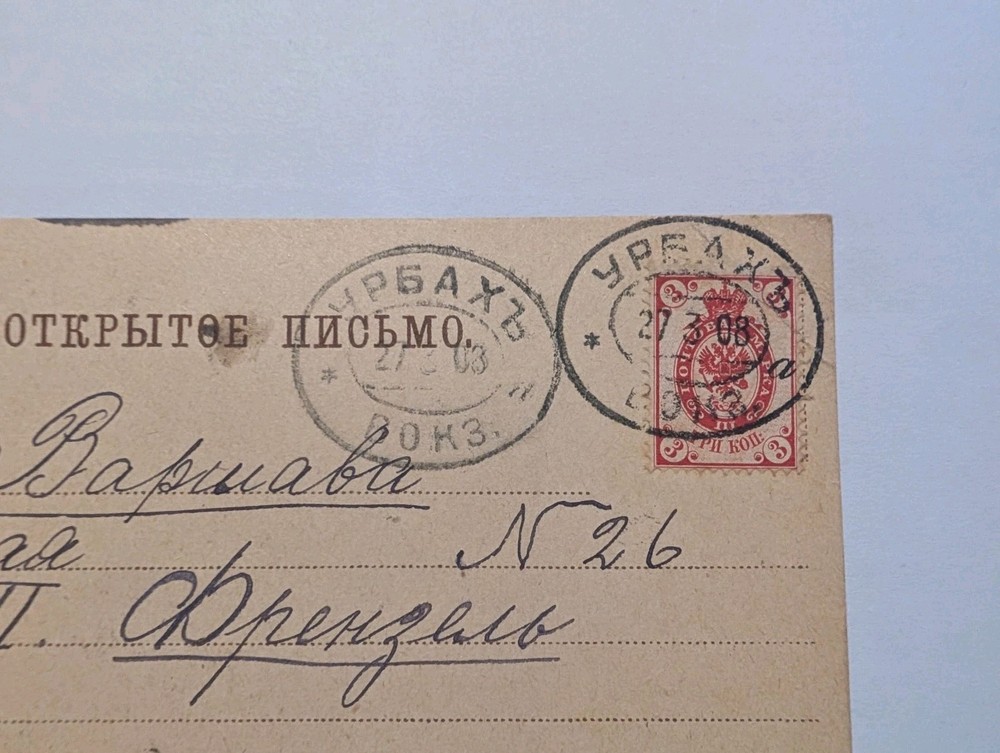 УРБАХЪ
27 3 03
* а
ВОКЗ.
УРБАХЪ
27 3 03
* а
ВОКЗ.
3 3
ПОЧТОВАЯ МАРКА
ТРИ КОП.
3 3
ОТКРЫТОЕ ПИСЬМО.
Варшава
ая N 26
П. Френзель